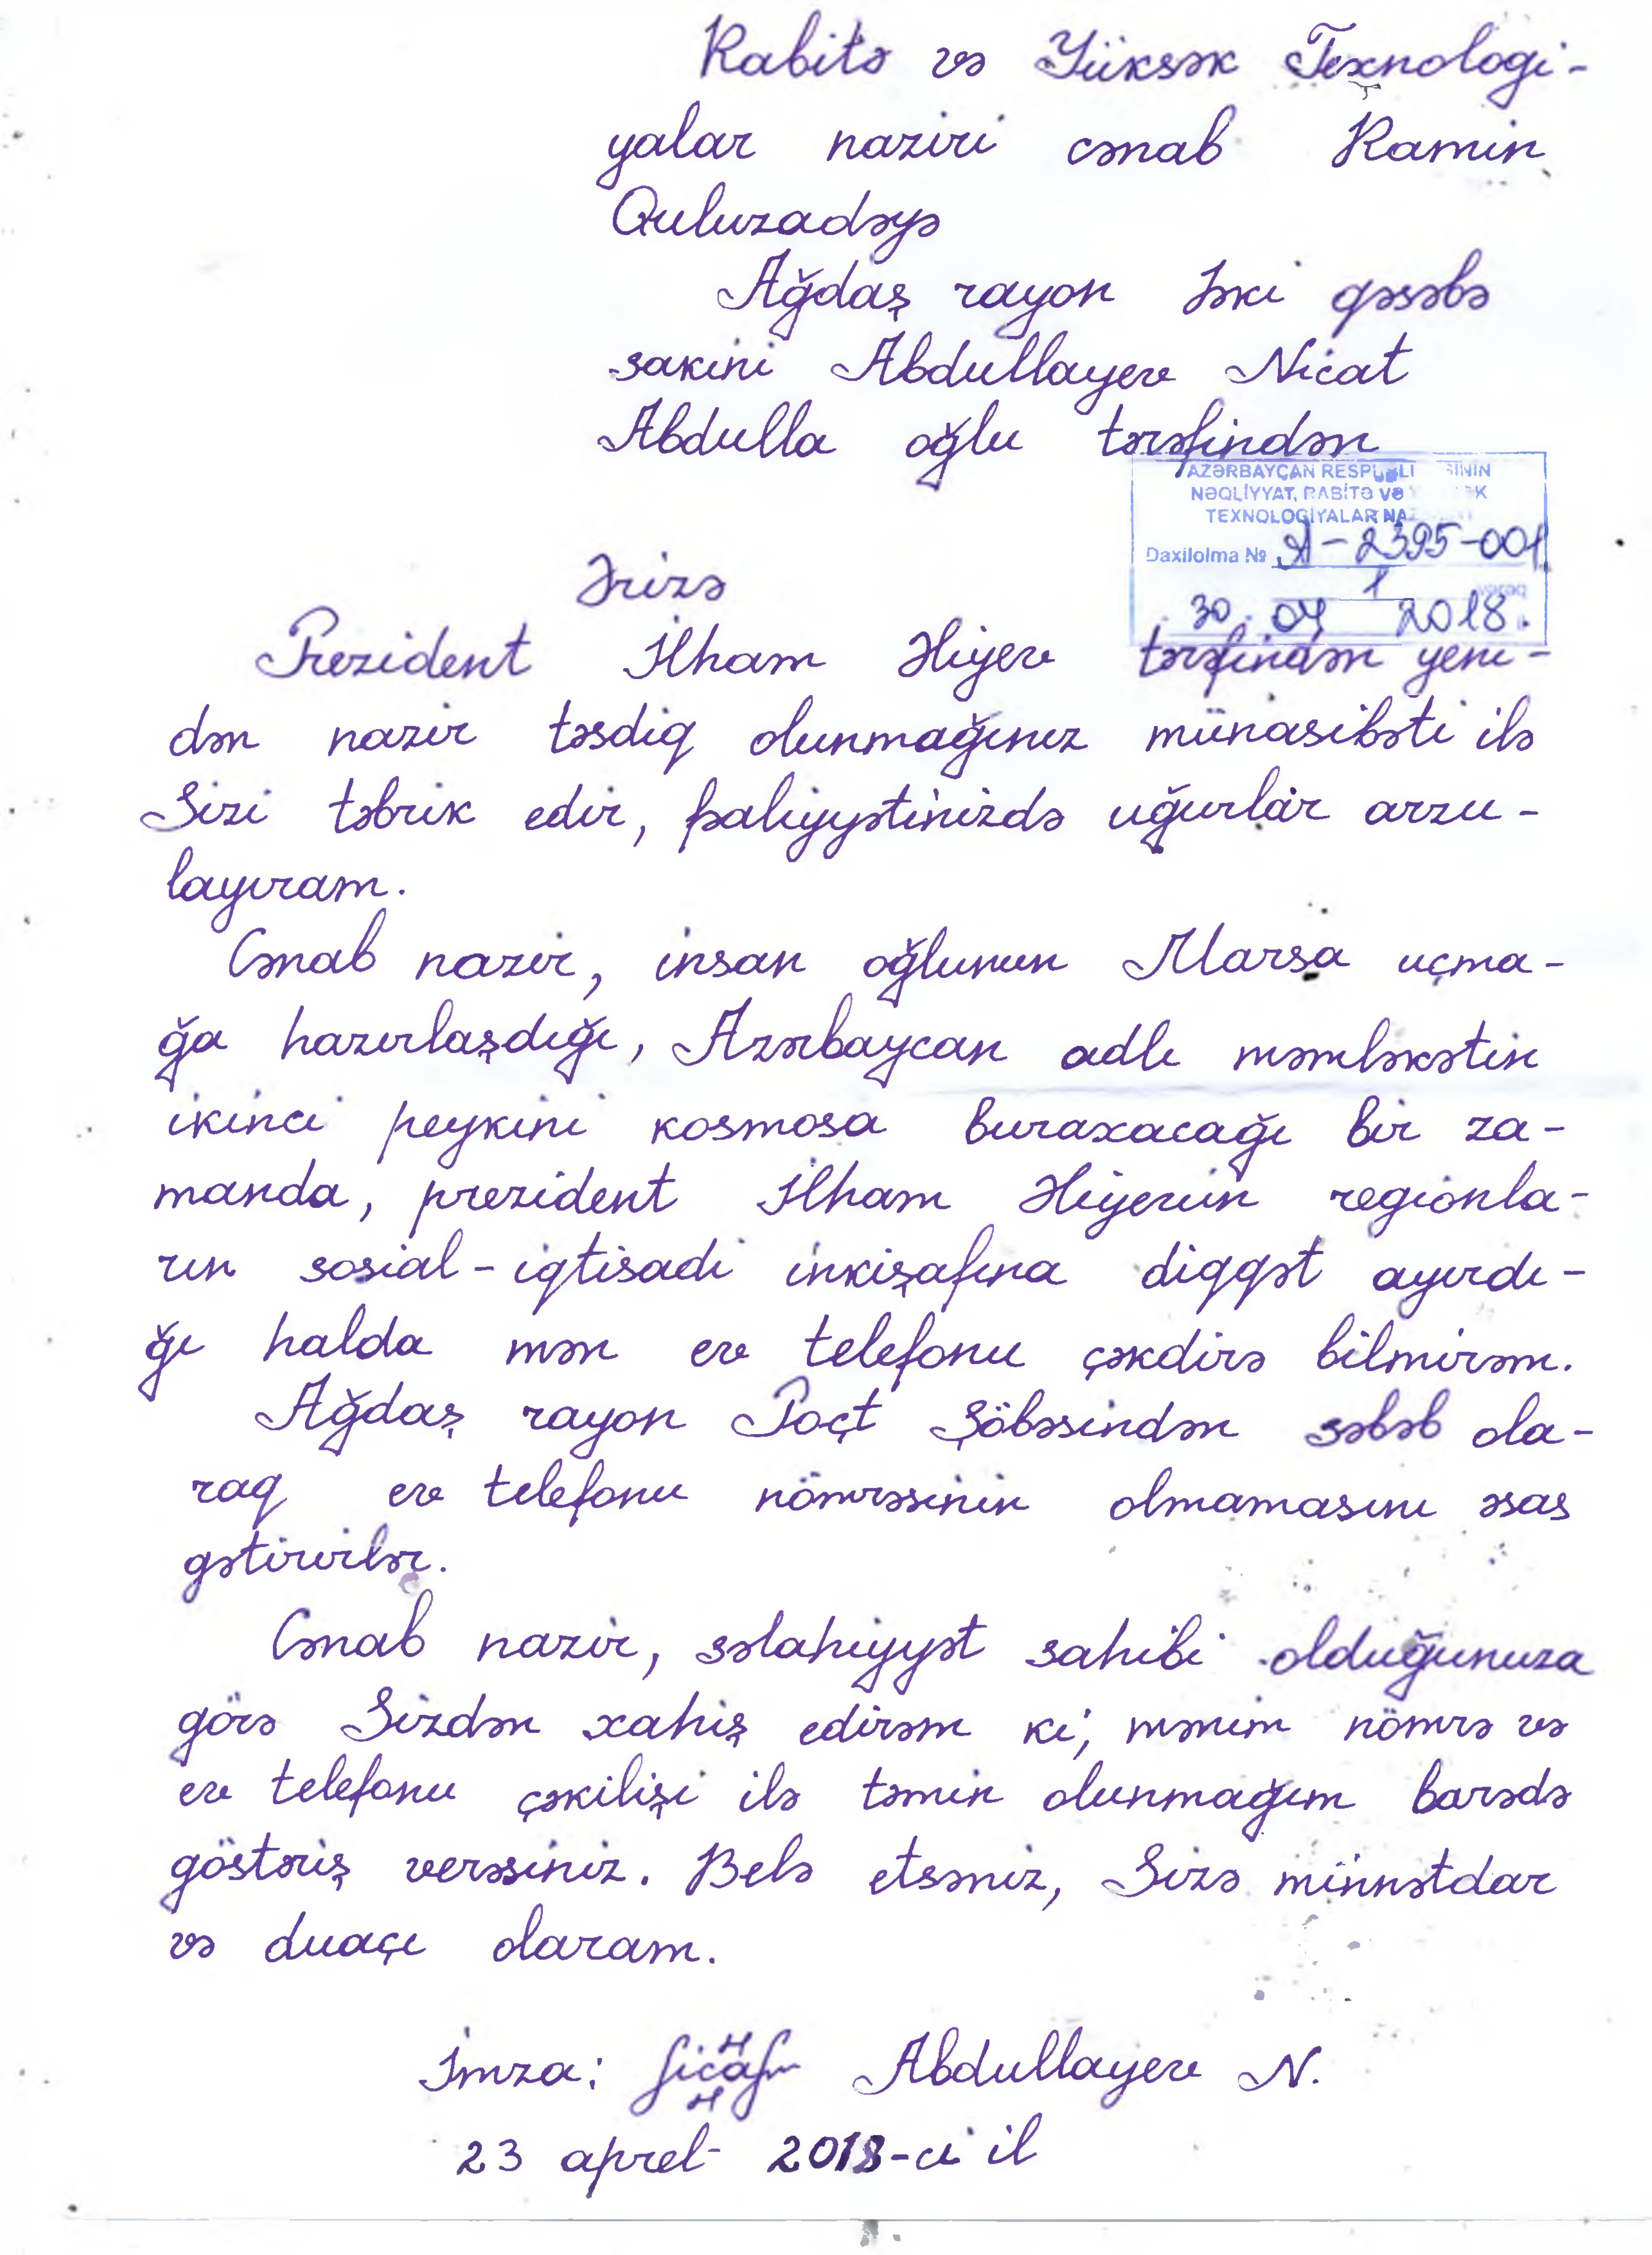 Rabitə və Yüksək Texnologi-
yalar naziri cənab Ramin
Quluzadəyə
Ağdaş rayon Ləki qəsəbə
sakini Abdullayev Nicat
Abdulla oğlu tərəfindən
AZƏRBAYCAN
NƏQLİYYAT, RABİTƏ VƏ
TEXNOLOGİYALAR
Daxilolma № A-2395-001
1 vərəq
30 04 2018.
Ərizə
Prezident İlham Əliyev tərəfindən yeni-
dən nazir təsdiq olunmağınız münasibəti ilə
Sizi təbrik edir, fəaliyyətinizdə uğurlar arzu-
layıram.
Cənab nazir, insan oğlunun Marsa uçma-
ğa hazırlaşdığı, Azərbaycan adlı məmləkətin
ikinci peykini kosmosa buraxacağı bir za-
manda, prezident İlham Əliyevin regionla-
rın sosial-iqtisadi inkişafına diqqət ayırdı-
ğı halda mən ev telefonu çəkdirə bilmirəm.
Ağdaş rayon Poçt Şöbəsindən səbəb ola-
raq ev telefonu nömrəsinin olmamasını əsas
gətirirlər.
Cənab nazir, səlahiyyət sahibi olduğunuza
görə Sizdən xahiş edirəm ki, mənim nömrə və
ev telefonu çəkilişi ilə təmin olunmağım barədə
göstəriş verəsiniz. Belə etsəniz, Sizə minnətdar
və duaçı olaram.
İmza: Abdullayev N.
23 aprel 2018-ci il